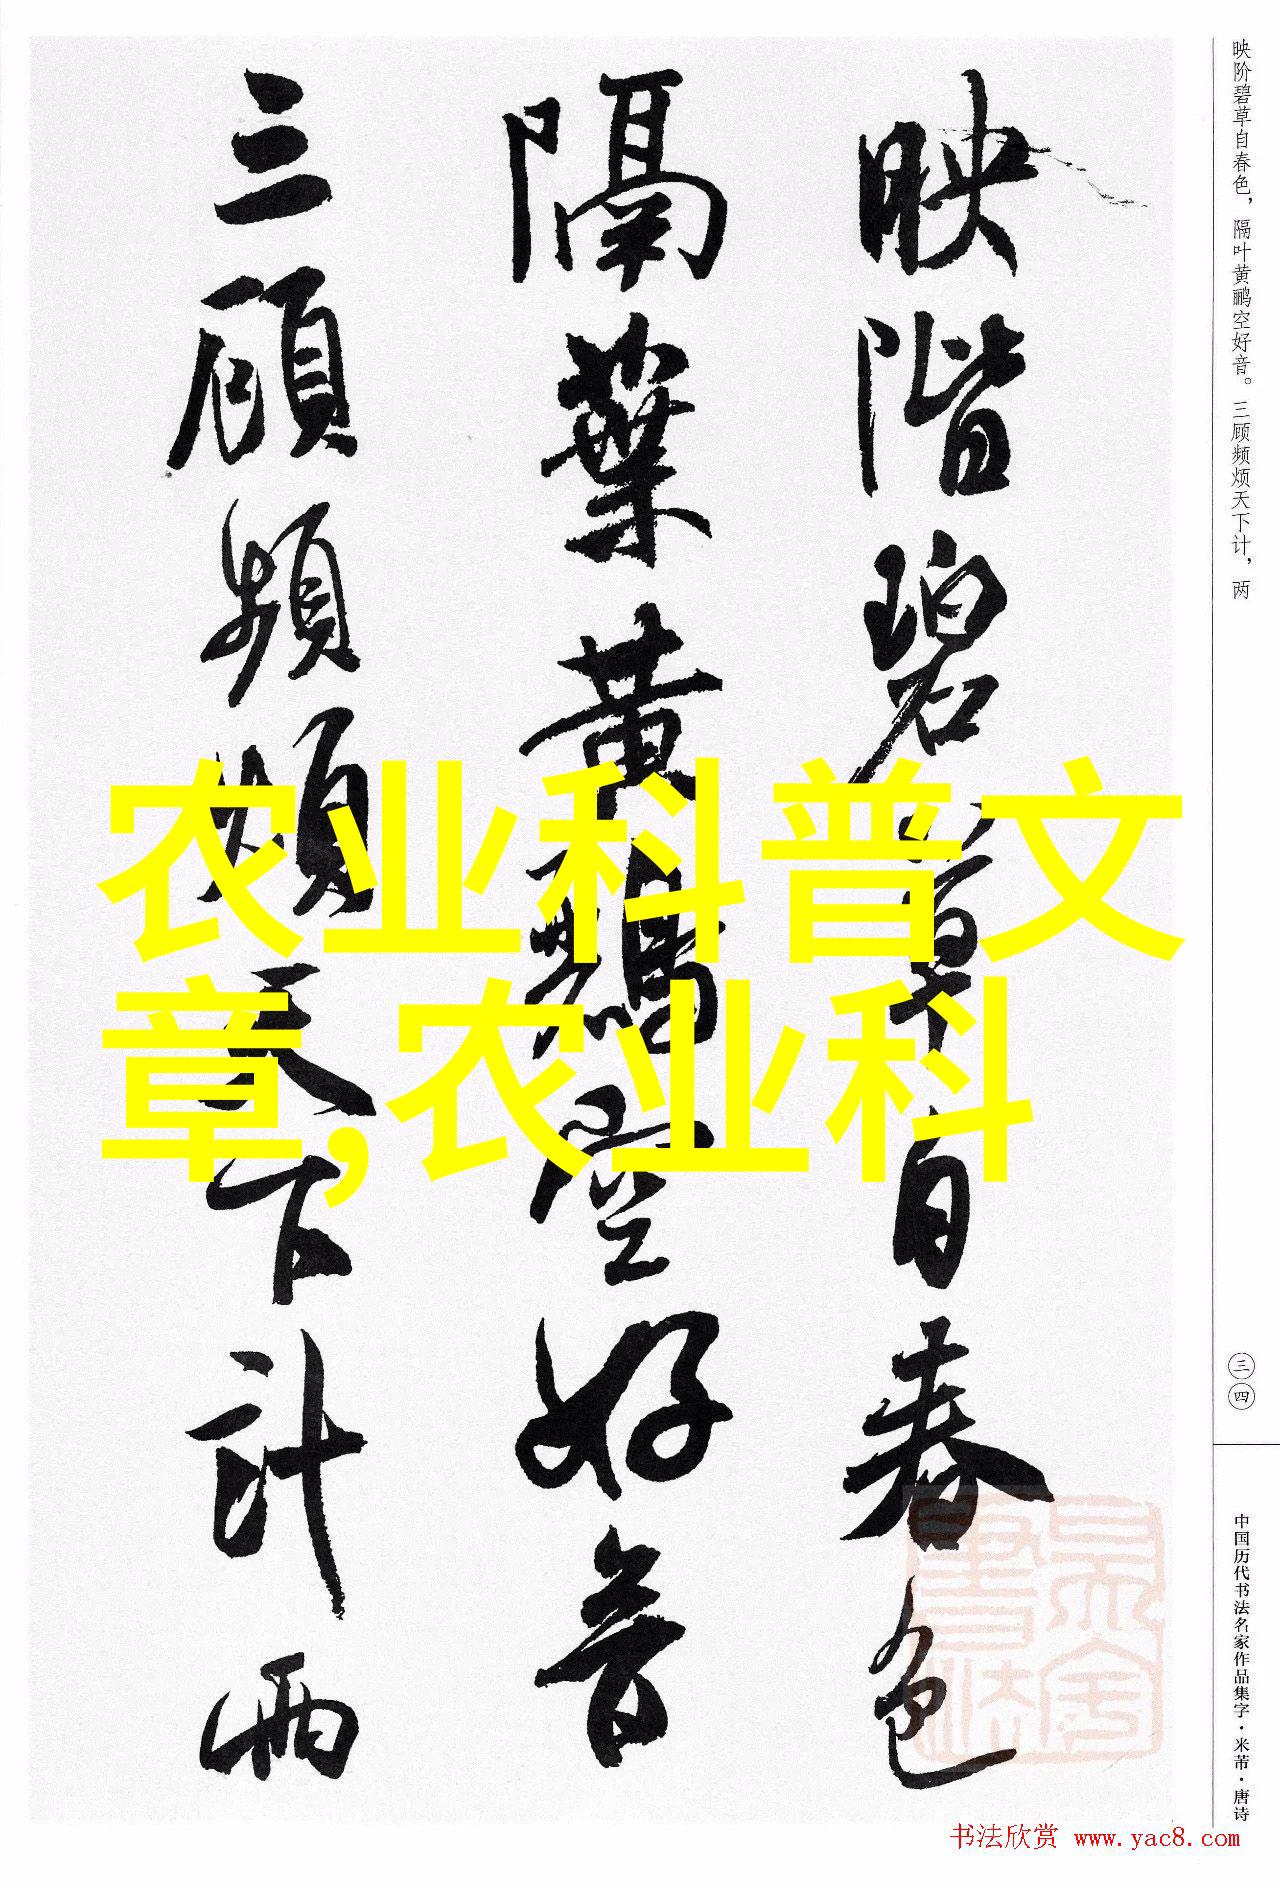 映階碧草自春色
隔葉黃鸝空好音
三顧頻煩天下計兩
农业科普文
章,农业科
映阶碧草自春色，隔叶黄鹂空好音。三顾频烦天下计，两
三四
中国历代书法名家作品集字·米芾·唐诗
书法欣赏 www.yac8.com